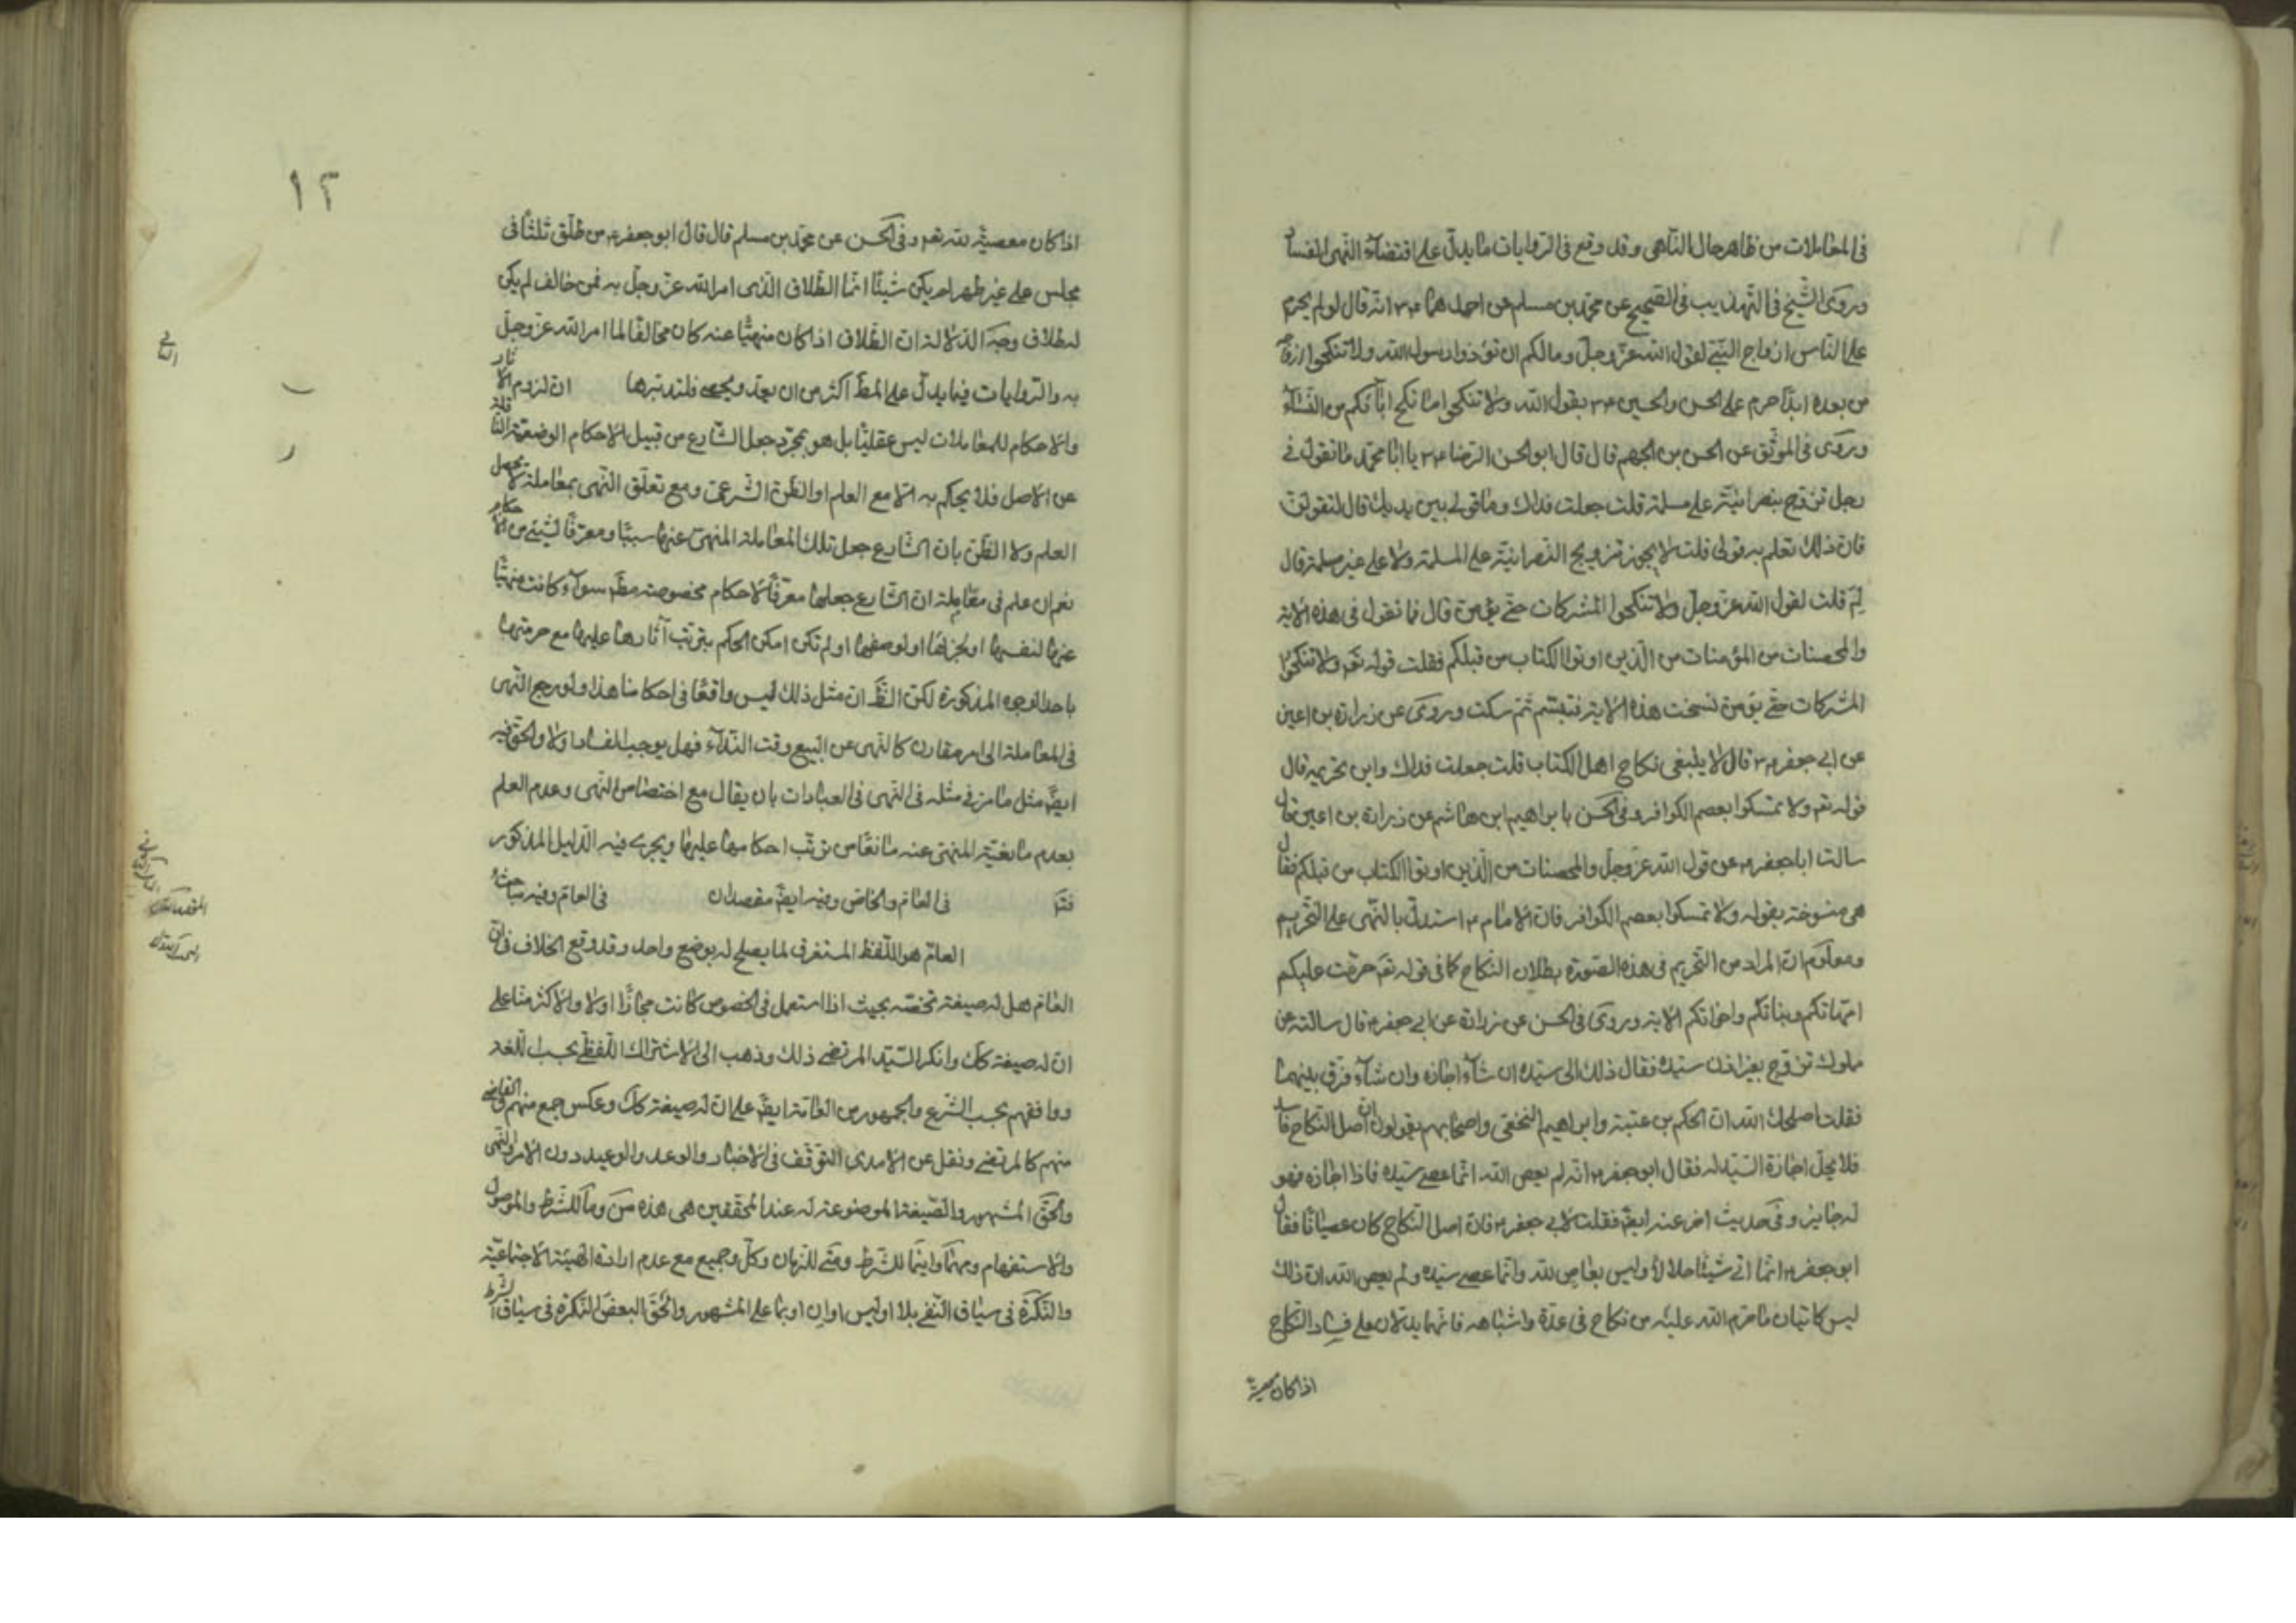 في المعاملات من ظاهر حال الناهي وقد وقع في الروايات ما يدل على اقتضاء النهي الفساد
وروى الشيخ في التهذيب في الصحيح عن محمد بن مسلم عن احدهما ٤ انه قال لو لم يحرم
على الناس ازواج النبي لقول الله عز وجل وما لكم ان تؤذوا رسول الله ولا تنكحوا ازواجه
من بعده ابدا حرم على الحسن والحسين ٤ بقول الله ولا تنكحوا ما نكح اباؤكم من النساء
وروى في الموثق عن الحسن بن الجهم قال قال ابو الحسن الرضا ٤ يا ابا محمد ما تقول في
رجل تزوج بنصرانية على مسلمة قلت جعلت فداك وما قولي بين يديك قال لتقولن
فان ذلك تعلم به قولي قلت لا يجوز تزويج النصرانية على المسلمة ولا على غير مسلمة قال
لم قلت لقول الله عز وجل ولا تنكحوا المشركات حتى يؤمن قال فما تقول في هذه الاية
والمحصنات من المؤمنات من الذين اوتوا الكتاب من قبلكم فقلت قوله تعم ولا تنكحوا
المشركات حتى يؤمن نسخت هذه الاية فتبسم ثم سكت وروى عن زرارة بن اعين
عن ابي جعفر ٤ قال لا ينبغي نكاح اهل الكتاب قلت جعلت فداك واين تحريمه قال
قوله تعم ولا تمسكوا بعصم الكوافر وفي الحسن بابراهيم ابن هاشم عن زرارة بن اعين قال
سالت ابا جعفر ٤ عن قول الله عز وجل والمحصنات من الذين اوتوا الكتاب من قبلكم فقال
هي منسوخة بقوله ولا تمسكوا بعصم الكوافر فان الامام ٤ استدل بالنهي على التحريم
ومعلوم ان المراد من التحريم في هذه الصورة بطلان النكاح كما في قوله تعم حرمت عليكم
امهاتكم وبناتكم واخواتكم الاية وروى في الحسن عن زرارة عن ابي جعفر ٤ قال سالته عن
مملوك تزوج بغير اذن سيده فقال ذلك الى سيده ان شاء اجازه وان شاء فرق بينهما
فقلت اصلحك الله ان الحكم بن عتيبة وابراهيم النخعي واصحابهم يقولون ان اصل النكاح فاسد
فلا يحل اجازة السيد له فقال ابو جعفر ٤ انه لم يعص الله انما عصى سيده فاذا اجازه فهو
له جايز وفي حديث اخر عنه ايضا فقلت لابي جعفر ٤ فان اصل النكاح كان عصيانا فقال
ابو جعفر ٤ انما اتى شيئا حلالا وليس بعاص لله وانما عصى سيده ولم يعص الله ان ذلك
ليس كاتيان ما حرم الله عليه من نكاح في عدة واشباهه فانهما يدلان على فساد النكاح
اذا كان معصية
١٢
اذا كان معصية لله تعم وفي الحسن عن محمد بن مسلم قال قال ابو جعفر ٤ من طلق ثلثا في
مجلس على غير طهر لم يكن شيئا انما الطلاق الذي امر الله عز وجل به فمن خالف لم يكن
له طلاق وجه الدلالة ان الطلاق اذا كان منهيا عنه كان مخالفا لما امر الله عز وجل
به والروايات فيما يدل على المط اكثر من ان يعد ويحصى فلتدبرها ان لزوم الاثار
والاحكام للمعاملات ليس عقليا بل هو بمجرد جعل الشارع من قبيل الاحكام الوضعية الناقلة
عن الاصل فلا يحكم به الا مع العلم او الظن الشرعي ومع تعلق النهي بمعاملة لا يحصل
العلم ولا الظن بان الشارع جعل تلك المعاملة المنهي عنها سببا ومعرفا لشيئ من الاحكام
نعم ان علم في معاملة ان الشارع جعلها معرفا لاحكام مخصوصة مط سواء كانت منهيا
عنها لنفسها او لجزئها او لوصفها او لم تكن امكن الحكم بترتب آثارها عليها مع حرمتها
باحد الوجوه المذكورة لكن الظ ان مثل ذلك ليس واقعا في احكامنا هذا ولو رجع النهي
في المعاملة الى امر مقارن كالنهي عن البيع وقت النداء فهل يوجب الفساد او لا والحق فيه
ايض مثل ما مر في مثله في النهي في العبادات بان يقال مع اختصاص النهي وعدم العلم
بعدم مانعية المنهي عنه مانعا من ترتب احكامها عليها ويجري فيه الدليل المذكور
فتم في العام والخاص وفيه ايض مقصدان في العام وفيه مباحث
العام هو اللفظ المستغرق لما يصلح له بوضع واحد وقد وقع الخلاف في ان
العام هل له صيغة تخصه بحيث اذا استعمل في الخصوص كانت مجازا او لا والاكثر منا على
ان له صيغة كك وانكر السيد المرتضى ذلك وذهب الى الاشتراك اللفظي بحسب اللغة
ووافقهم بحسب الشرع والجمهور من العامة ايض على ان له صيغة كك وعكس جمع منهم والقاضي
منهم كالمرتضى ونقل عن الامدي التوقف في الاخبار والوعد والوعيد دون الامر والنهي
والحق المشهور والصيغة الموضوعة له عند المحققين هي هذه من وما للشرط والموصول
والاستفهام ومهما واينما للشرط ومتى للزمان وكل وجميع مع عدم ارادة الهيئة الاجتماعية
والنكرة في سياق النفي بلا او ليس او ان او بما على المشهور والحق البعض النكرة في سياق الشرط